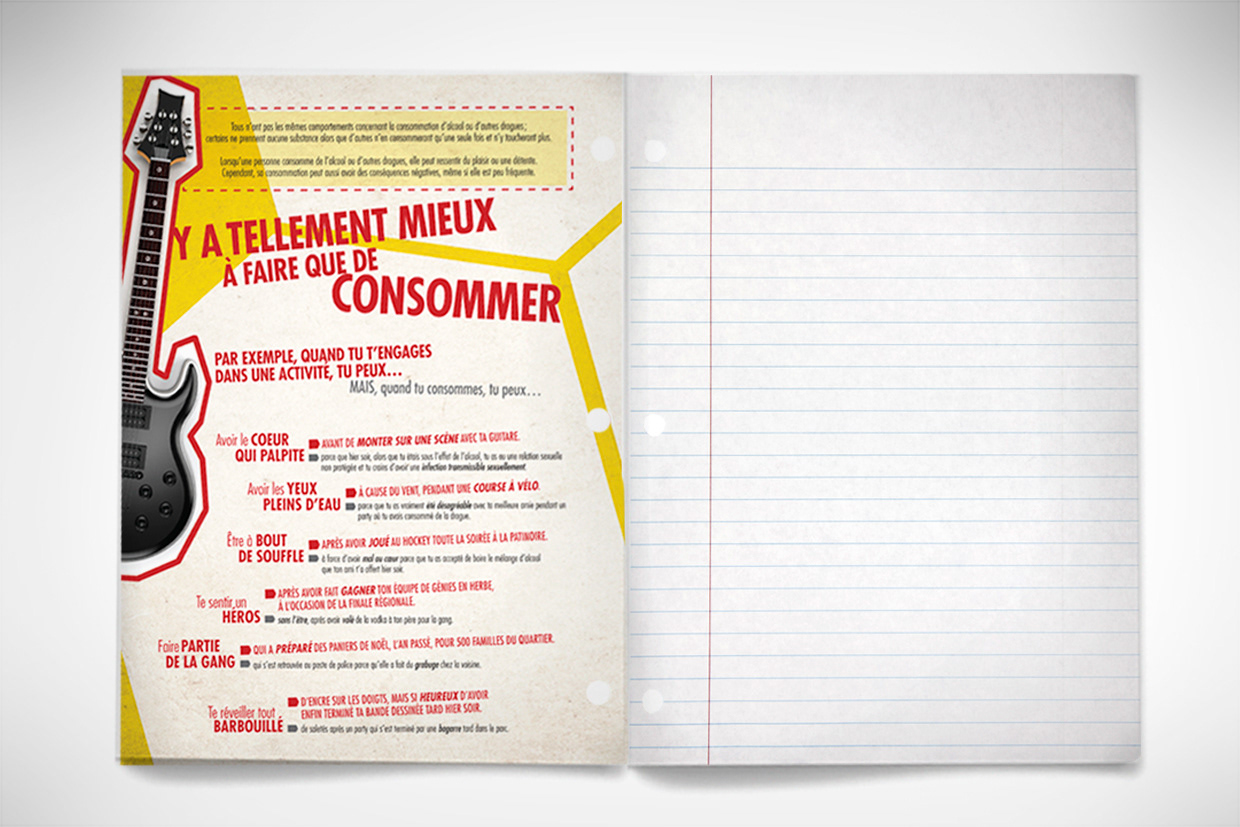 Tous n'ont pas les mêmes comportements concernant la consommation d'alcool ou d'autres drogues;
certains ne prennent aucune substance alors que d'autres n'en consommeront qu'une seule fois et n'y toucheront plus.
Lorsqu'une personne consomme de l'alcool ou d'autres drogues, elle peut ressentir du plaisir ou une détente.
Cependant, sa consommation peut aussi avoir des conséquences négatives, même si elle est peu fréquente.
Y A TELLEMENT MIEUX
À FAIRE QUE DE
CONSOMMER
PAR EXEMPLE, QUAND TU T'ENGAGES
DANS UNE ACTIVITÉ, TU PEUX...
MAIS, quand tu consommes, tu peux...
Avoir le COEUR
QUI PALPITE
AVANT DE MONTER SUR UNE SCÈNE AVEC TA GUITARE.
parce que hier soir, alors que tu étais sous l'effet de l'alcool, tu as eu une relation sexuelle
non protégée et tu crains d'avoir une infection transmissible sexuellement.
Avoir les YEUX
PLEINS D'EAU
À CAUSE DU VENT, PENDANT UNE COURSE À VÉLO.
parce que tu as vraiment été désagréable avec ta meilleure amie pendant un
party où tu avais consommé de la drogue.
Être à BOUT
DE SOUFFLE
APRÈS AVOIR JOUÉ AU HOCKEY TOUTE LA SOIRÉE À LA PATINOIRE.
à force d'avoir mal au cœur parce que tu as accepté de boire le mélange d'alcool
que ton ami t'a offert hier soir.
Te sentir un
HÉROS
APRÈS AVOIR FAIT GAGNER TON ÉQUIPE DE GÉNIES EN HERBE,
À L'OCCASION DE LA FINALE RÉGIONALE.
sans l'être, après avoir volé de la vodka à ton père pour la gang.
Faire PARTIE
DE LA GANG
QUI A PRÉPARÉ DES PANIERS DE NOËL, L'AN PASSÉ, POUR 500 FAMILLES DU QUARTIER.
qui s'est retrouvée au poste de police parce qu'elle a fait du grabuge chez la voisine.
Te réveiller tout
BARBOUILLÉ
D'ENCRE SUR LES DOIGTS, MAIS SI HEUREUX D'AVOIR
ENFIN TERMINÉ TA BANDE DESSINÉE TARD HIER SOIR.
de saletés après un party qui s'est terminé par une bagarre tard dans le parc.